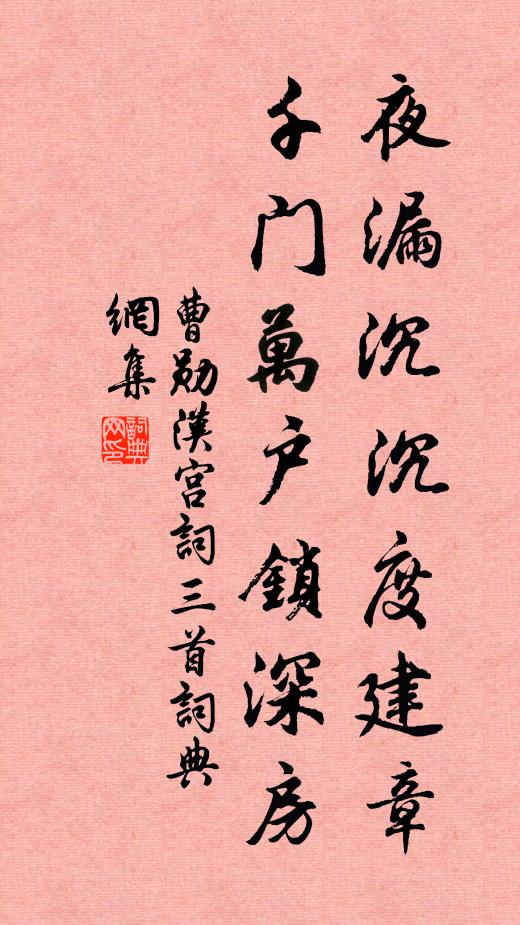 夜漏沉沉度建章
千門萬户鎖深房
曹勛漢宫詞三首詞典
網集
詞典
网印